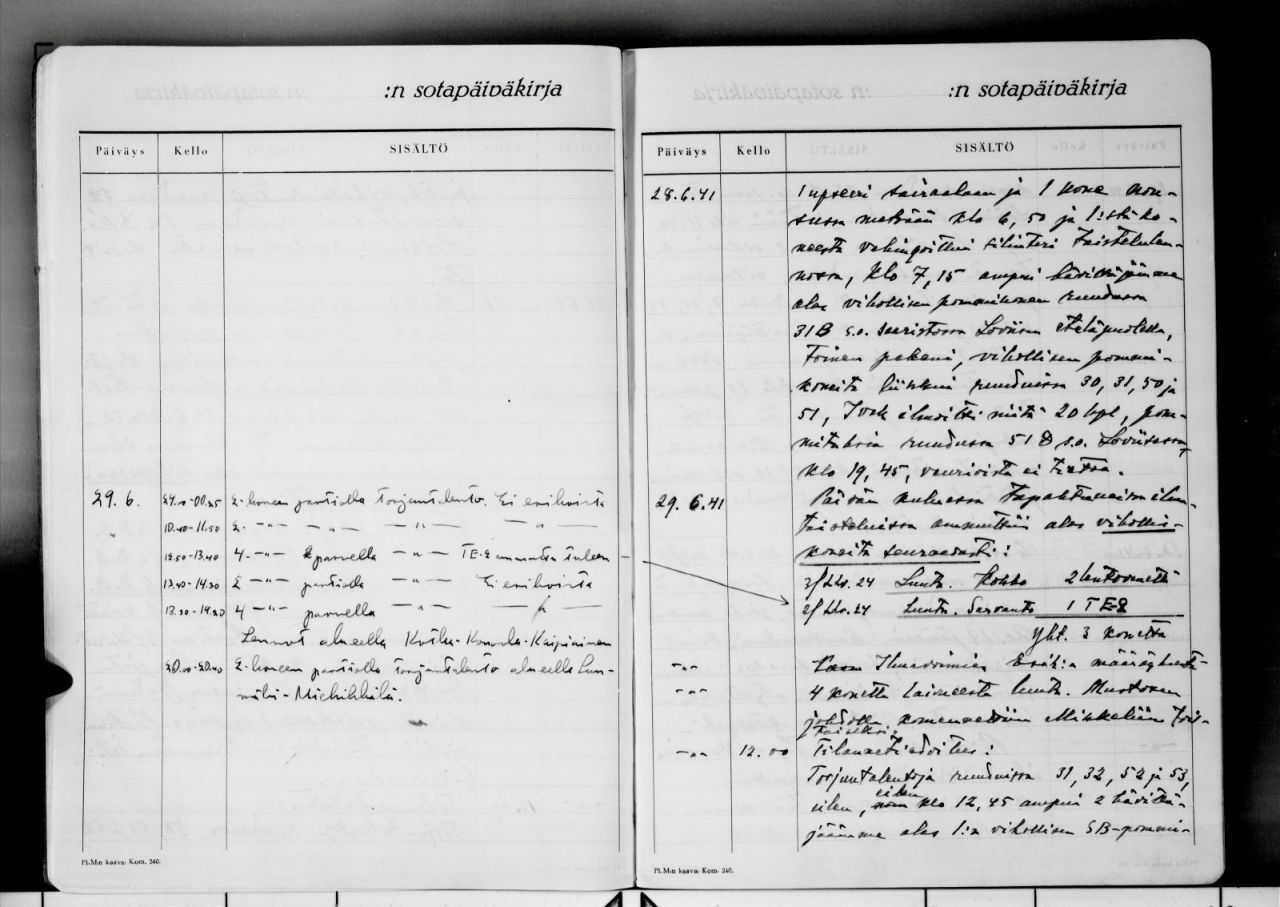 :n sotapäiväkirja
Päiväys Kello SISÄLTÖ
29.6. 24.00-00.25 2-koneen partiolla torjuntalento. Ei erikoista
10.40-11.50 2 -"- -"- -"- -"-
12.50-13.40 4 -"- parvella -"- TE-2 ammuttu tuleen
13.40-14.30 2 -"- partiolla Ei erikoista
13.20-14.20 4 -"- parvella -"-
Lennot alueella Kotka-Kouvola-Kaipiainen
20.00-20.40 2-koneen partiolla torjuntalento alueella
Miehikkälä.
Pl.M:n kaava: Kom. 240.
:n sotapäiväkirja
Päiväys Kello SISÄLTÖ
28.6.41 1 upseeri sairaalaan ja 1 kone
metsään klo 6,50 ja 1:stä ko-
neesta vahingoittui silinteri taistelulen-
nossa, klo 7,15 ampui hävittäjämme
alas vihollisen pommikoneen ruudussa
31 B s.o. saaristossa Loviisan eteläpuolella,
toinen pakeni, vihollisen pommi-
koneita liikkui ruuduissa 30, 31, 50 ja
51, Ivak ilmoitti niitä 20 kpl, pom-
mituksia ruudussa 51 D s.o. Loviisassa,
klo 19,45, vaurioista ei tietoa.
29.6.41 Päivän kuluessa tapahtuneissa ilma-
taisteluissa ammuttiin alas vihollis-
koneita seuraavasti:
2/LLv.24 Luutn. Kokko 2 lentokonetta
2/LLv.24 Luutn. Sarvanto 1 TE-2
Yht. 3 konetta
-"- Ilmavoimien Esik:n määräyksestä
-"- 4 konetta Laivueesta luutn. Mustosen
johdolla komennettiin Mikkeliin
-"- 12.00 Tilannetiedoitus:
Torjuntalentoja ruuduissa 31, 32, 52 ja 53,
eilen, eilen klo 12,45 ampui 2 hävittä-
jäämme alas 1:n vihollisen SB-pommi-
Pl.M:n kaava: Kom. 240.